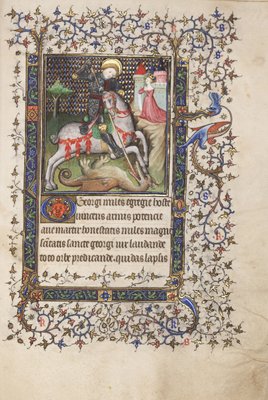 Georgi miles egregie hoste
munitus armis potencie
aue martir honestatis miles magni
tatis sancte georgi uir laudande
toto orbe predicande. qui das lapsis